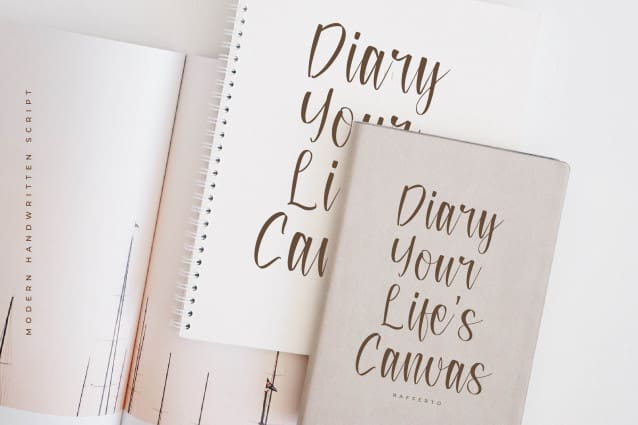 MODERN HANDWRITTEN SCRIPT
Diary
Your
Li
Ca
Diary
Your
Life's
Canvas
RAFFESTO